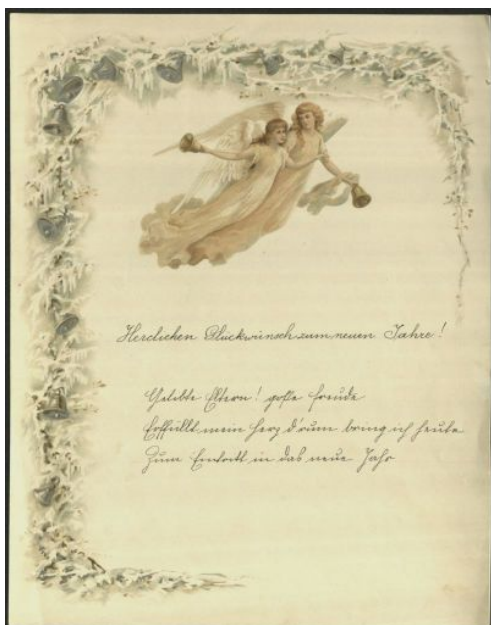 Herclichen Glückwünsch zum neuen Jahre!
Geliebte Eltern! große Freude
Erffüllt mein Herz d'rum bring ich heute
Zum Eintritt in das neue Jahr